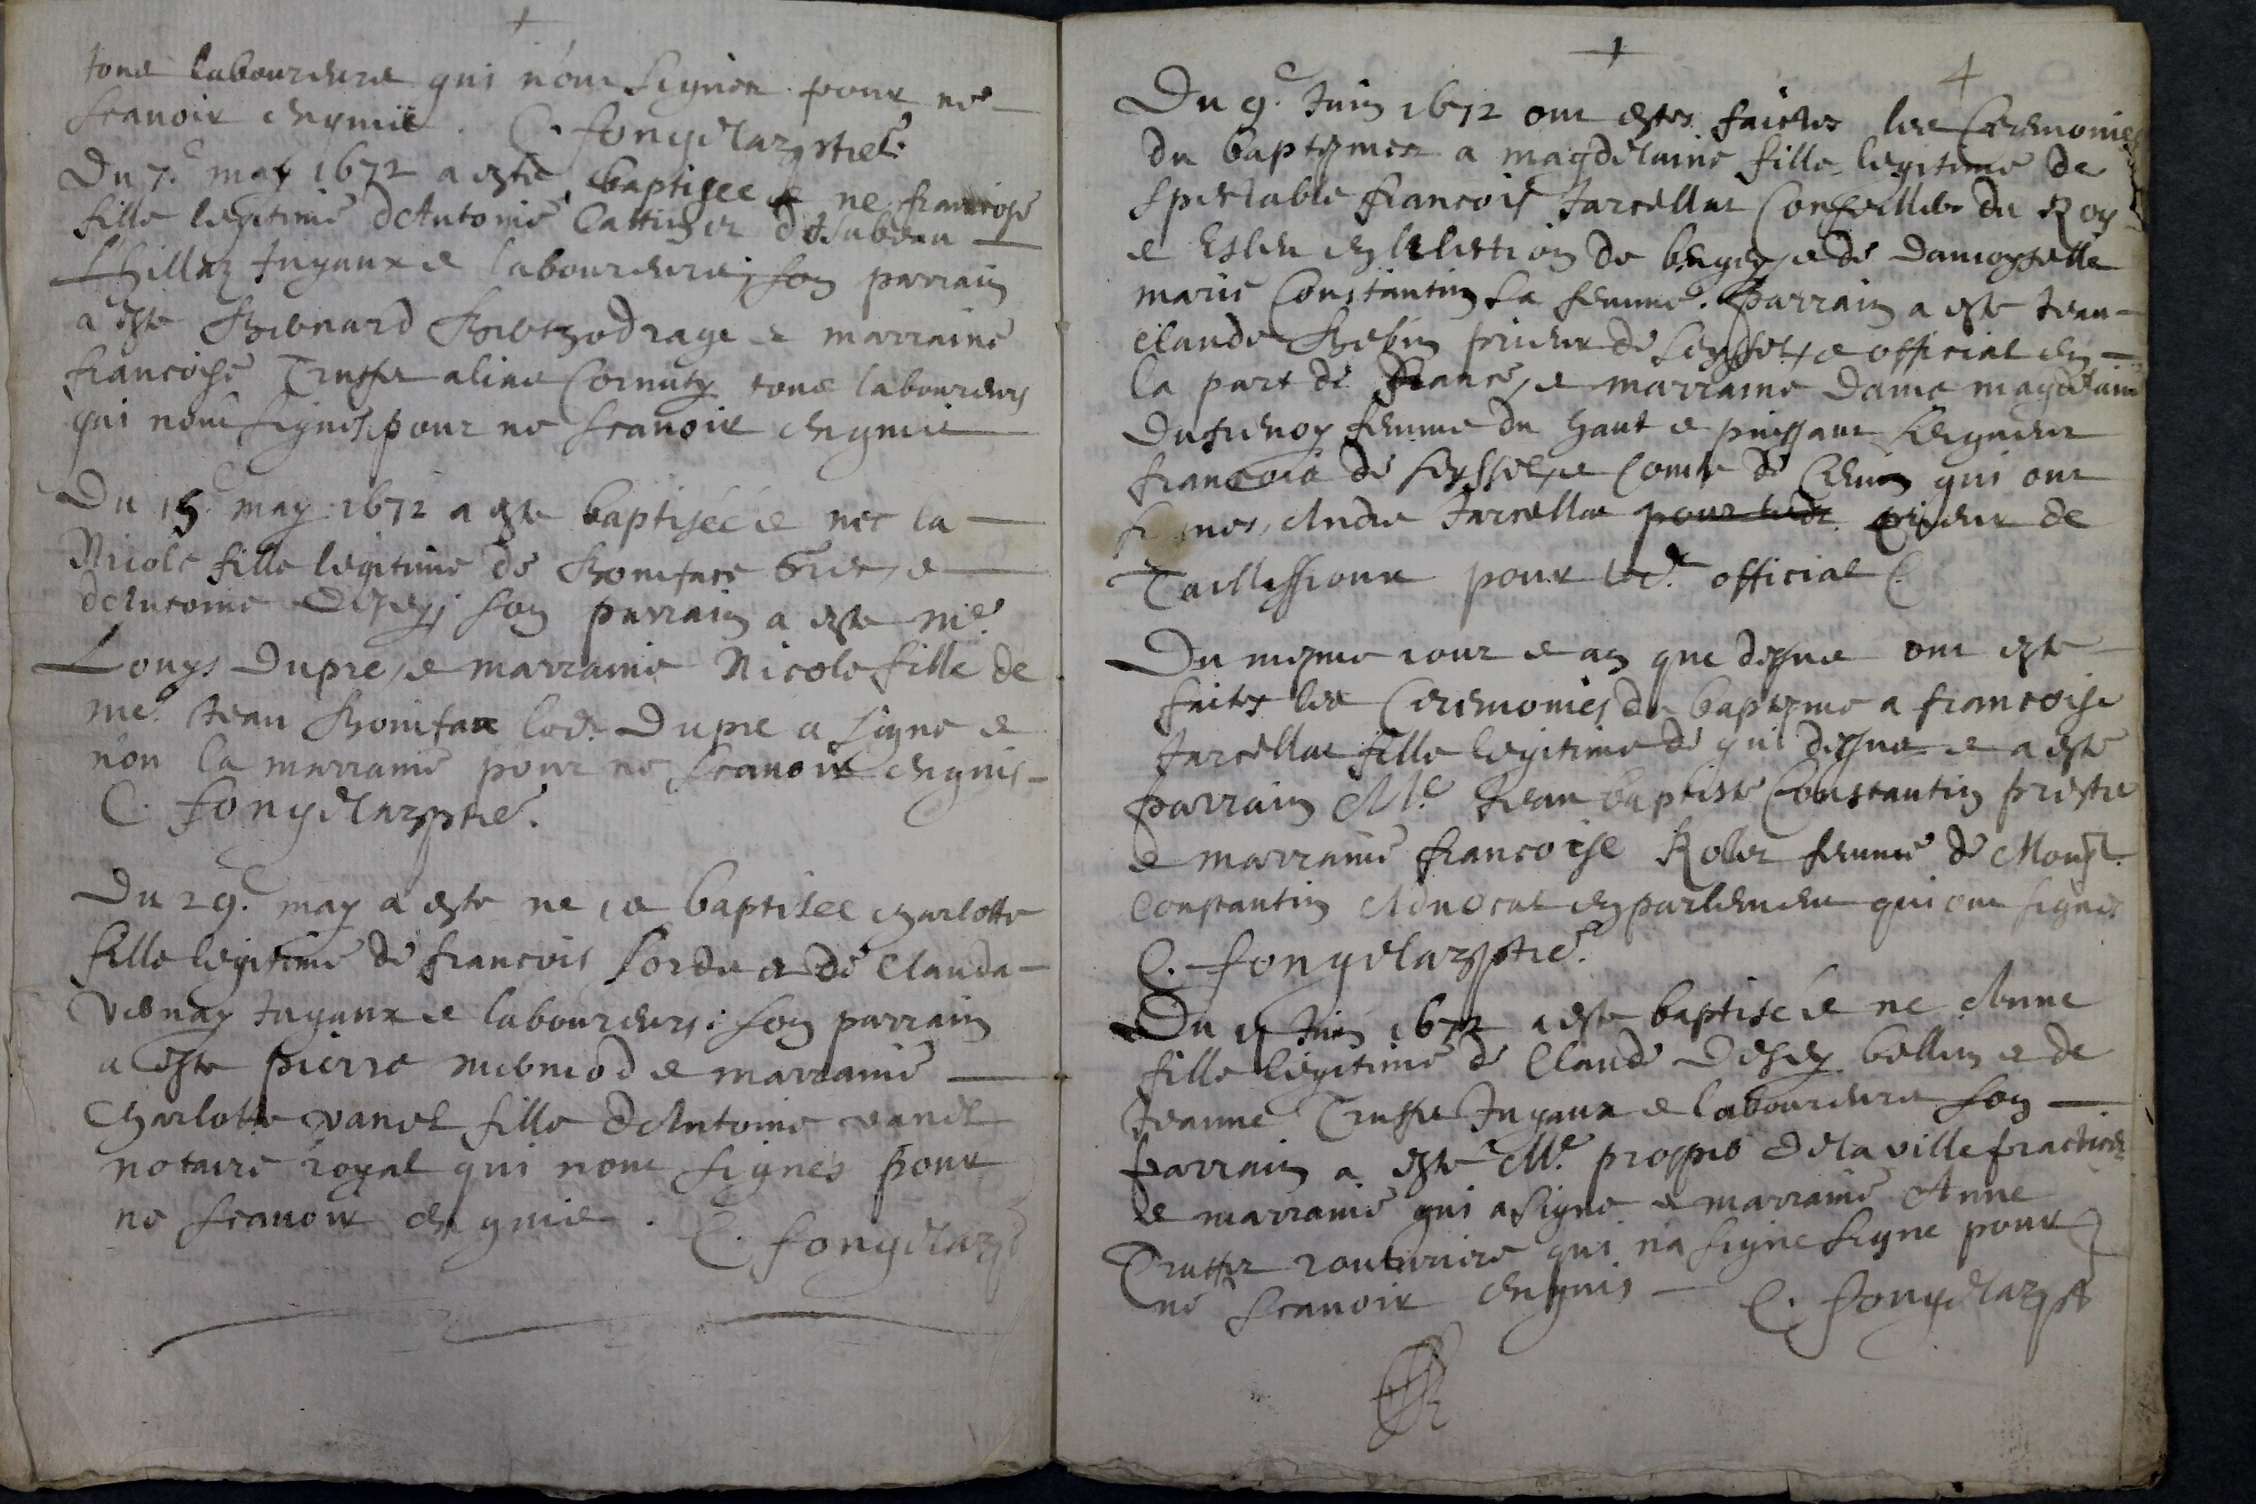 tous laboureurs qui n'ont signer pour ne
scavoir enquis. C. fongelaz ptre.
Du 7.e may 1672 a este baptisee e ne francoise
fille legitime dAntoine Cattin e
Lhillaz Jugaux e laboureurs; son parrain
a este e marraine
francoise Truffer aliae Cornuty tous laboureurs
qui nont signes pour ne scavoir enquis
Du 15 may 1672 a este baptiséé e nee la
Nicole fille legitime de Boniface e
dAntoine Desey; son parrain a este me.
Louys Dupre, e marraine Nicole fille de
me. Jean Bonifax led. Dupre a signe e
non la marraine pour ne scavoir enquis
C. fongelaz ptre.
Du 29.e may a este ne, e baptisee charlotte
fille legitime de francois Sordet e de Clauda
Vesnay Jugaux e laboureurs: son parrain
a este pierre mermod e marraine
Charlotte vanel fille dAntoine vanel
notaire royal qui nont signés pour
ne scavoir enquis. C. fongelaz
4
Du 9.e Juin 1672 ont estes faictes les Ceremonies
du baptesmes a magdelaine fille legitime de
spectable francois Jarcellat Conseiller du Roy
e Esleu en lelection de bugey, e de damoyselle
marie Constantin sa femme. Parrain a este Jean
claude prieur de Seyssel, e official en
la part de france, e marraine dame magdelaine
Dufrenoy femme du haut e puissant seigneur
francois de seyssel, e Comte de qui ont
signes, Andre Jarcellat pour led. prieur de
Taillissieux pour led. official C.
Du mesme jour e an que dessus ont este
faites les Ceremonies du baptesme a francoise
Jarcellat fille legitime de qui dessus e a este
parrain Me. Jean baptiste Constantin prestre
e marraine francoise Rober femme de Monsr.
Constantin Advocat en parlement qui ont signes
C. fongelaz ptre.
Du 15 Juin 1672 a este baptisé e ne Anne
fille legitime de Claude Desey bellin e de
Jeanne Truffer Jugaux e laboureurs son
parrain a este Me. prosper Delaville praticien
e marraine qui a signe e marraine Anne
Truffer routuriere qui n'a signe signe pour
ne scavoir enquis C. fongelaz pt